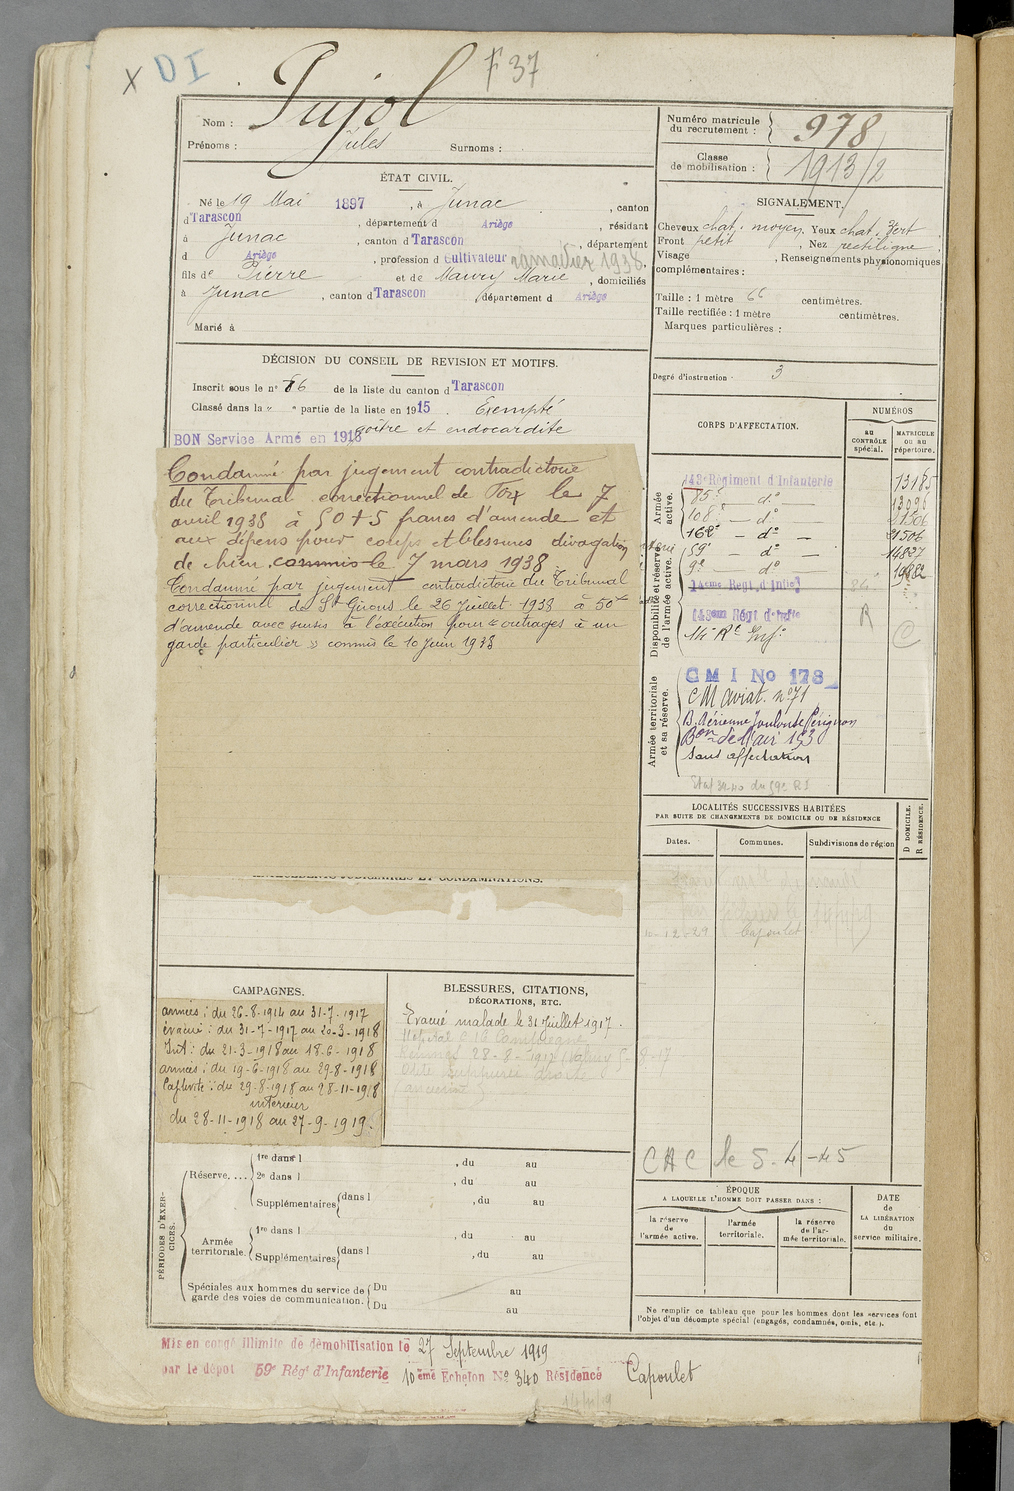 X DI F 37
Nom : Pujol
Prénoms : Jules Surnoms :
Numéro matricule du recrutement : 978
Classe de mobilisation : 1913/2
ÉTAT CIVIL.
Né le 19 Mai 1897, à Junac, canton
d Tarascon, département d Ariège, résidant
à Junac, canton d Tarascon, département
d Ariège, profession d Cultivateur 1938,
fils de Pierre et de Maury Marie, domiciliés
à Junac, canton d Tarascon, département d Ariège
Marié à
SIGNALEMENT.
Cheveux chat. moyen Yeux chat. vert
Front petit, Nez rectiligne
Visage , Renseignements physionomiques
complémentaires :
Taille : 1 mètre 66 centimètres.
Taille rectifiée : 1 mètre centimètres.
Marques particulières :
Degré d'instruction 3
DÉCISION DU CONSEIL DE REVISION ET MOTIFS.
Inscrit sous le n° 66 de la liste du canton d Tarascon
Classé dans la " " partie de la liste en 1915. Exempté
goître et endocardite
BON Service Armé en 1918
Condamné par jugement contradictoire
du Tribunal correctionnel de Foix le 7
avril 1938 à 50 + 5 francs d'amende et
aux dépens pour coups et blessures divagation
de chien, commis le 7 mars 1938
Condamné par jugement contradictoire du Tribunal
correctionnel de St Girons le 26 Juillet 1938 à 50f
d'amende avec sursis à l'exécution pour " outrages à un
garde particulier " commis le 10 Juin 1938
ANTÉCÉDENTS JUDICIAIRES ET CONDAMNATIONS.
CORPS D'AFFECTATION.
NUMÉROS
au CONTRÔLE spécial.
MATRICULE ou au répertoire.
Armée active.
143e Régiment d'Infanterie 13185
85e d° 13095
108e — d° — 21506
162e — d° — 21506
Disponibilité et réserve de l'armée active.
59e — d° — 14827
9e — d° 19882
14eme Regt. d'Infie
143eme Régt d'Infie R
14e Rt Inf. C
Armée territoriale et sa réserve.
C M I No 178
CM aviat. n°71
B. Aérienne Toulouse Pérignon
Bon de l'air 153
Sans affectation
LOCALITÉS SUCCESSIVES HABITÉES
PAR SUITE DE CHANGEMENTS DE DOMICILE OU DE RÉSIDENCE
Dates. Communes. Subdivisions de région
D DOMICILE. R RÉSIDENCE.
10-12-29 Capoulet
CAC le 5-4-45
CAMPAGNES.
armées : du 26-8-1914 au 31-7-1917
évacué : du 31-7-1917 au 20-3-1918
Int : du 21-3-1918 au 18-6-1918
armées : du 19-6-1918 au 29-8-1918
Captivité : du 29-8-1918 au 28-11-1918
intérieur
du 28-11-1918 au 27-9-1919.
BLESSURES, CITATIONS,
DÉCORATIONS, ETC.
Évacué malade le 31 Juillet 1917.
Hôpital Compiègne
Rennes 28-8-1917
Otite suppurée droite
(ancienne)
PÉRIODES D'EXERCICES.
Réserve.... 1re dans l , du au
2e dans l , du au
Supplémentaires dans l , du au
Armée territoriale. 1re dans l , du au
Supplémentaires dans l , du au
Spéciales aux hommes du service de garde des voies de communication. Du au
Du au
ÉPOQUE
A LAQUELLE L'HOMME DOIT PASSER DANS :
la réserve de l'armée active.
l'armée territoriale.
la réserve de l'armée territoriale.
DATE de LA LIBÉRATION du service militaire.
Ne remplir ce tableau que pour les hommes dont les services font
l'objet d'un décompte spécial (engagés, condamnés, omis, etc.).
Mis en congé illimité de démobilisation le 27 Septembre 1919
par le dépôt 59e Régt d'Infanterie 10eme Echelon No 340 Résidence Capoulet